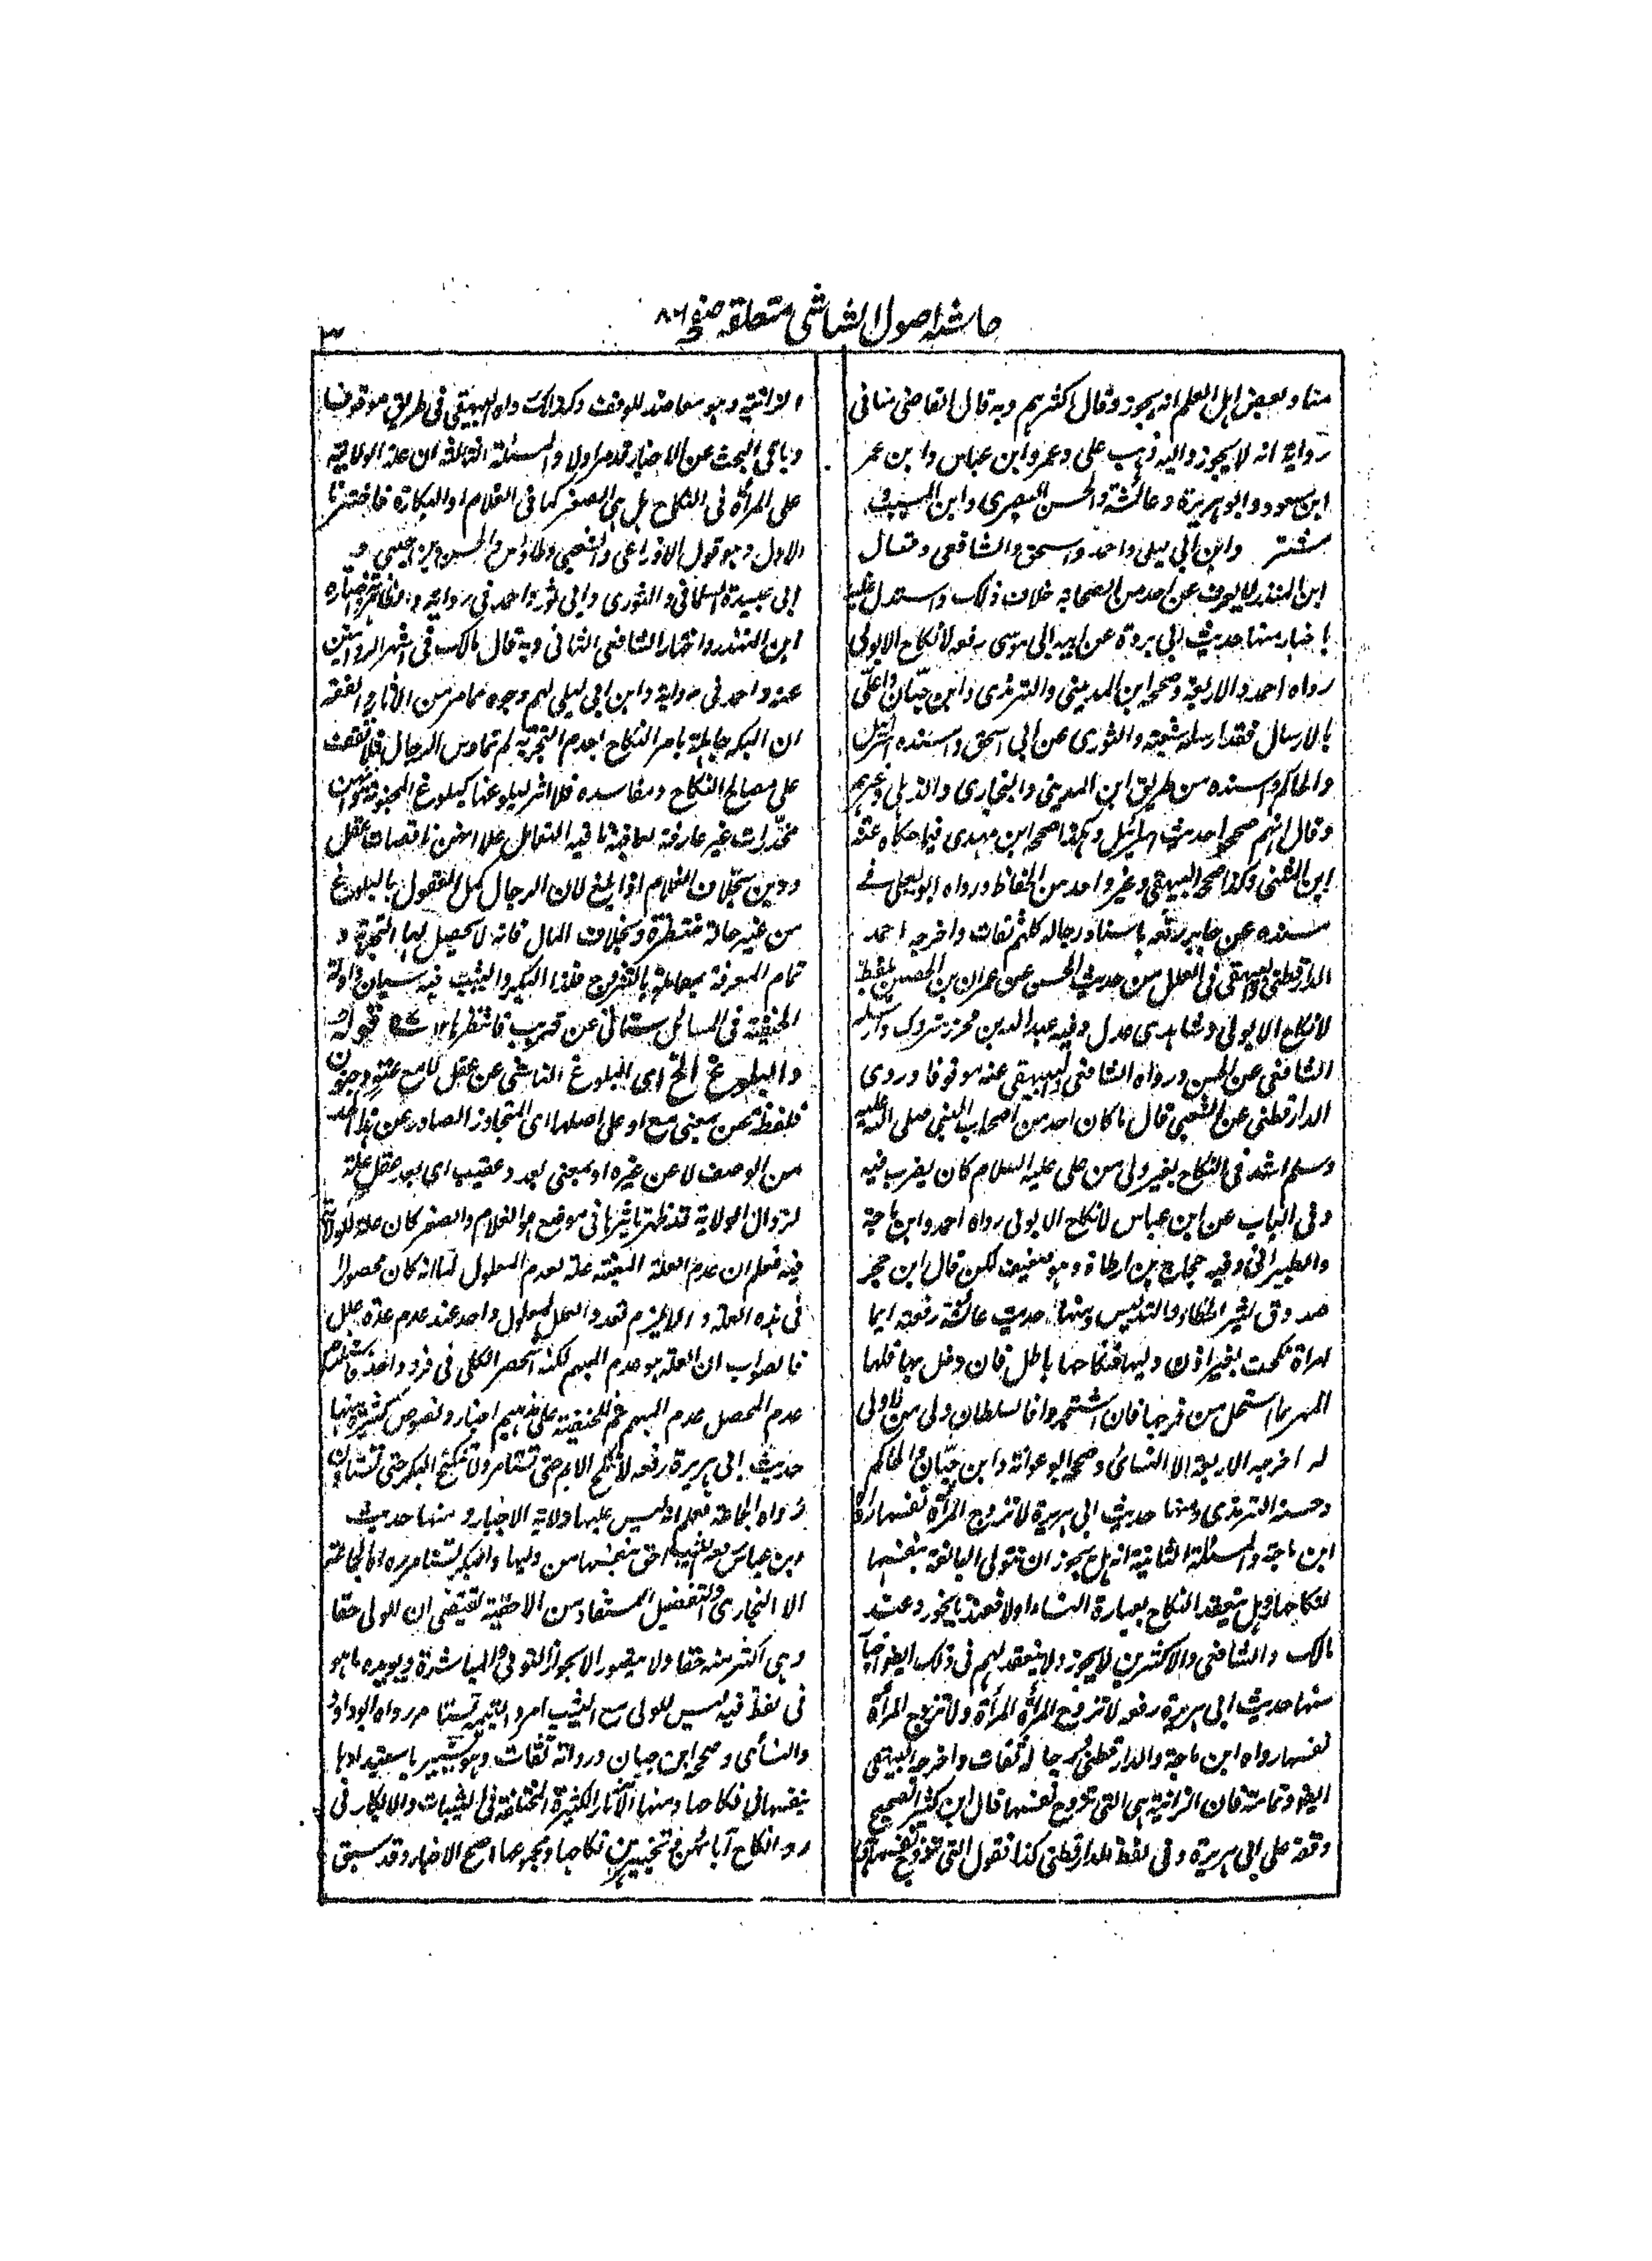 حاشیہ اصول الشاشی متعلقہ صفحہ ۸۶
۳
منا و بعض اہل العلم انہ یجوز وقال اکثرہم وبہ قال القاضی منا فی
روایة انہ لا یجوز والیہ ذہب علی وعمر وابن عباس وابن عمر
ابن مسعود وابو ہریرة وعائشة والحسن البصری وابن المسیب وابن
شبرمة وابن ابی لیلی واحمد واسحق والشافعی وقال
ابن المنذر لا یعرف عن احد من الصحابة خلاف ذلک واستدل علیہ
باخبار منہا حدیث ابی بردة عن ابیہ ابی موسی رفعہ لا نکاح الا بولی
رواہ احمد والاربعة وصححہ ابن المدینی والترمذی وابن حبّان واعلّ
بالارسال فقد ارسلہ شعبة والثوری عن ابی اسحق واسندہ اسرائیل
والحاکم واسندہ من طریق ابن المدینی والبخاری والذہلی وغیرہم
وقال انہم صححوا حدیث اسرائیل وکذا صححہ ابن مہدی فیما حکاہ عنہ
ابن المثنی وکذا صححہ البیہقی وغیر واحد من الحفاظ ورواہ ابو یعلی فے
مسندہ عن جابر رفعہ باسناد رجالہ کلہم ثقات واخرجہ احمد
الدارقطنی والبیہقی فی العلل من حدیث الحسن عن عمران بن الحصین بلفظ
لا نکاح الا بولی وشاہدی عدل وفیہ عبد اللہ بن محرز متروک وارسلہ
الشافعی عن الحسن ورواہ الشافعی والبیہقی عنہ موقوفا وروی
الدارقطنی عن الشعبی قال ما کان احد من اصحاب النبی صلی اللہ علیہ
وسلم اشد فی النکاح بغیر ولی من علی علیہ السلام کان یضرب فیہ
وفی الباب عن ابن عباس لا نکاح الا بولی رواہ احمد وابن ماجة
والطبرانی وفیہ حجاج بن ارطاة وہو ضعیف لکن قال ابن حجر
صدوق کثیر الخطاء والتدلیس ومنہا حدیث عائشة رفعتہ ایما
امراة نکحت بغیر اذن ولیہا فنکاحہا باطل فان دخل بہا فلہا
المہر بما استحل من فرجہا فان اشتجروا فالسلطان ولی من لا ولی
لہ اخرجہ الاربعة الا النسائی وصححہ ابو عوانة وابن حبّان والحاکم
وحسنہ الترمذی ومنہا حدیث ابی ہریرة لا تزوج المرأة نفسہا رواہ
ابن ماجة والمسئلة الثانیة انہ ہل یجوز ان تتولی البالغة بنفسہا
نکاحہا وہل ینعقد النکاح بعبارة النساء اولا فعندنا یجوز وعند
مالک والشافعی والاکثرین لا یجوز ولا ینعقد لہم فی ذلک ایضا اخبار
منہا حدیث ابی ہریرة رفعہ لا تزوج المرأة المرأة ولا تزوج المرأة
نفسہا رواہ ابن ماجة والدارقطنی رجالہ ثقات واخرجہ البیہقی
ایضا وتمامتہ فان الزانیة ہی التی تزوج نفسہا قال ابن کثیر الصحیح
وقفہ علی ابی ہریرة وفی لفظ الدارقطنی کنا نقول التی تزوج نفسہا ہی
الزانیة وہو معاضد للوقف وکذلک رواہ البیہقی فی طریق موقوفا
وباقی البحث عن الاخبار قد مر اولا والمسئلة الثالثة ان علة الولایة
علی المرأة فی النکاح ہل ہی الصغر کما فی الغلام او البکارة فاخترنا
الاول وہو قول الاوزاعی والشعبی وطاؤس والحسن بن حیی و
ابی عبیدة السلمانی والثوری وابی ثور واحمد فی روایة واختارہ
ابن المنذر واختار الشافعی الثانی وبہ قال مالک فی اشہر الروایتین
عنہ واحمد فی روایة وابن ابی لیلی لہم وجوہ مما مر من الآثار والفقہ
ان البکر جاہلة بامر النکاح لعدم التجربة لم تمارس الرجال فلا تقف
علی مصالح النکاح ومفاسدہ فلا اثر لبلوغہا کبلوغ المجنونة
مخدّرات غیر عارفة لعاقبة ما فیہ التعامل علا انہن ناقصات عقل
ودین بخلاف الغلام اذا بلغ لان الرجال کمل العقول بالبلوغ
من غیر حالة منتظرة وبخلاف المال فانہ لا یحصل بہا التجربة و
تمام المعرفة بمعاملة بالتزوج فلذا البکر والثیب فیہ سیان وادلة
الحنفیة فی المسائل ستاتی عن قریب فانتظرہا ۱۲ قولہ
والبلوغ الخ ای البلوغ الناشی عن عقل لا مع عتہ وجنون
فلفظة عن بمعنی مع او علی اصلہا ای المتجاوز الصادر عن ہذا الحد
من الوصف لا عن غیرہ او بمعنی بعد وعقیب ای بعد عقل علة
لزوال الولایة قد ظہر تاثیرہا فی موضع ہو الغلام والصغر کان علة للولایة
فیہ فعلم ان عدم العلة المعینة علة لعدم المعلول لما انہ کان محصورا
فی ہذہ العلة والا یلزم تعدد العلل لمعلول واحد عند عدم عدة علل
فالصواب ان العلة ہو عدم المبہم لکنہ انحصر الکلی فی فرد واحد
عدم المحصل عدم المبہم ثم للحنفیة علی مذہبہم اخبار ونصوص کثیرة منہا
حدیث ابی ہریرة رفعہ لا تنکح الایم حتی تستامر ولا تنکح البکر حتی تستاذن
رواہ الجماعة فعلم انہ لیس علیہا ولایة الاجبار ومنہا حدیث
ابن عباس رفعہ الثیب احق بنفسہا من ولیہا والبکر تستامر رواہ الجماعة
الا البخاری والتفضیل المستفاد من الاحقیة تقتضی ان للولی حقا
وہی اکثر منہ حقا ولا یتصور الا بجواز التولی والمباشرة ویویدہ ما ہو
فی لفظ فیہ لیس للولی مع الثیب امر والیتیمة تستامر رواہ ابو داود
والنسائی وصححہ ابن حبان ورواتہ ثقات
بنفسہا فی نکاحہا ومنہا الآثار الکثیرة المختلفة فی الثیبات والابکار فی
رد انکاح آبائہن وتخییرہن نکاحہا ومجموعہا اصح الاخبار وقد سبق